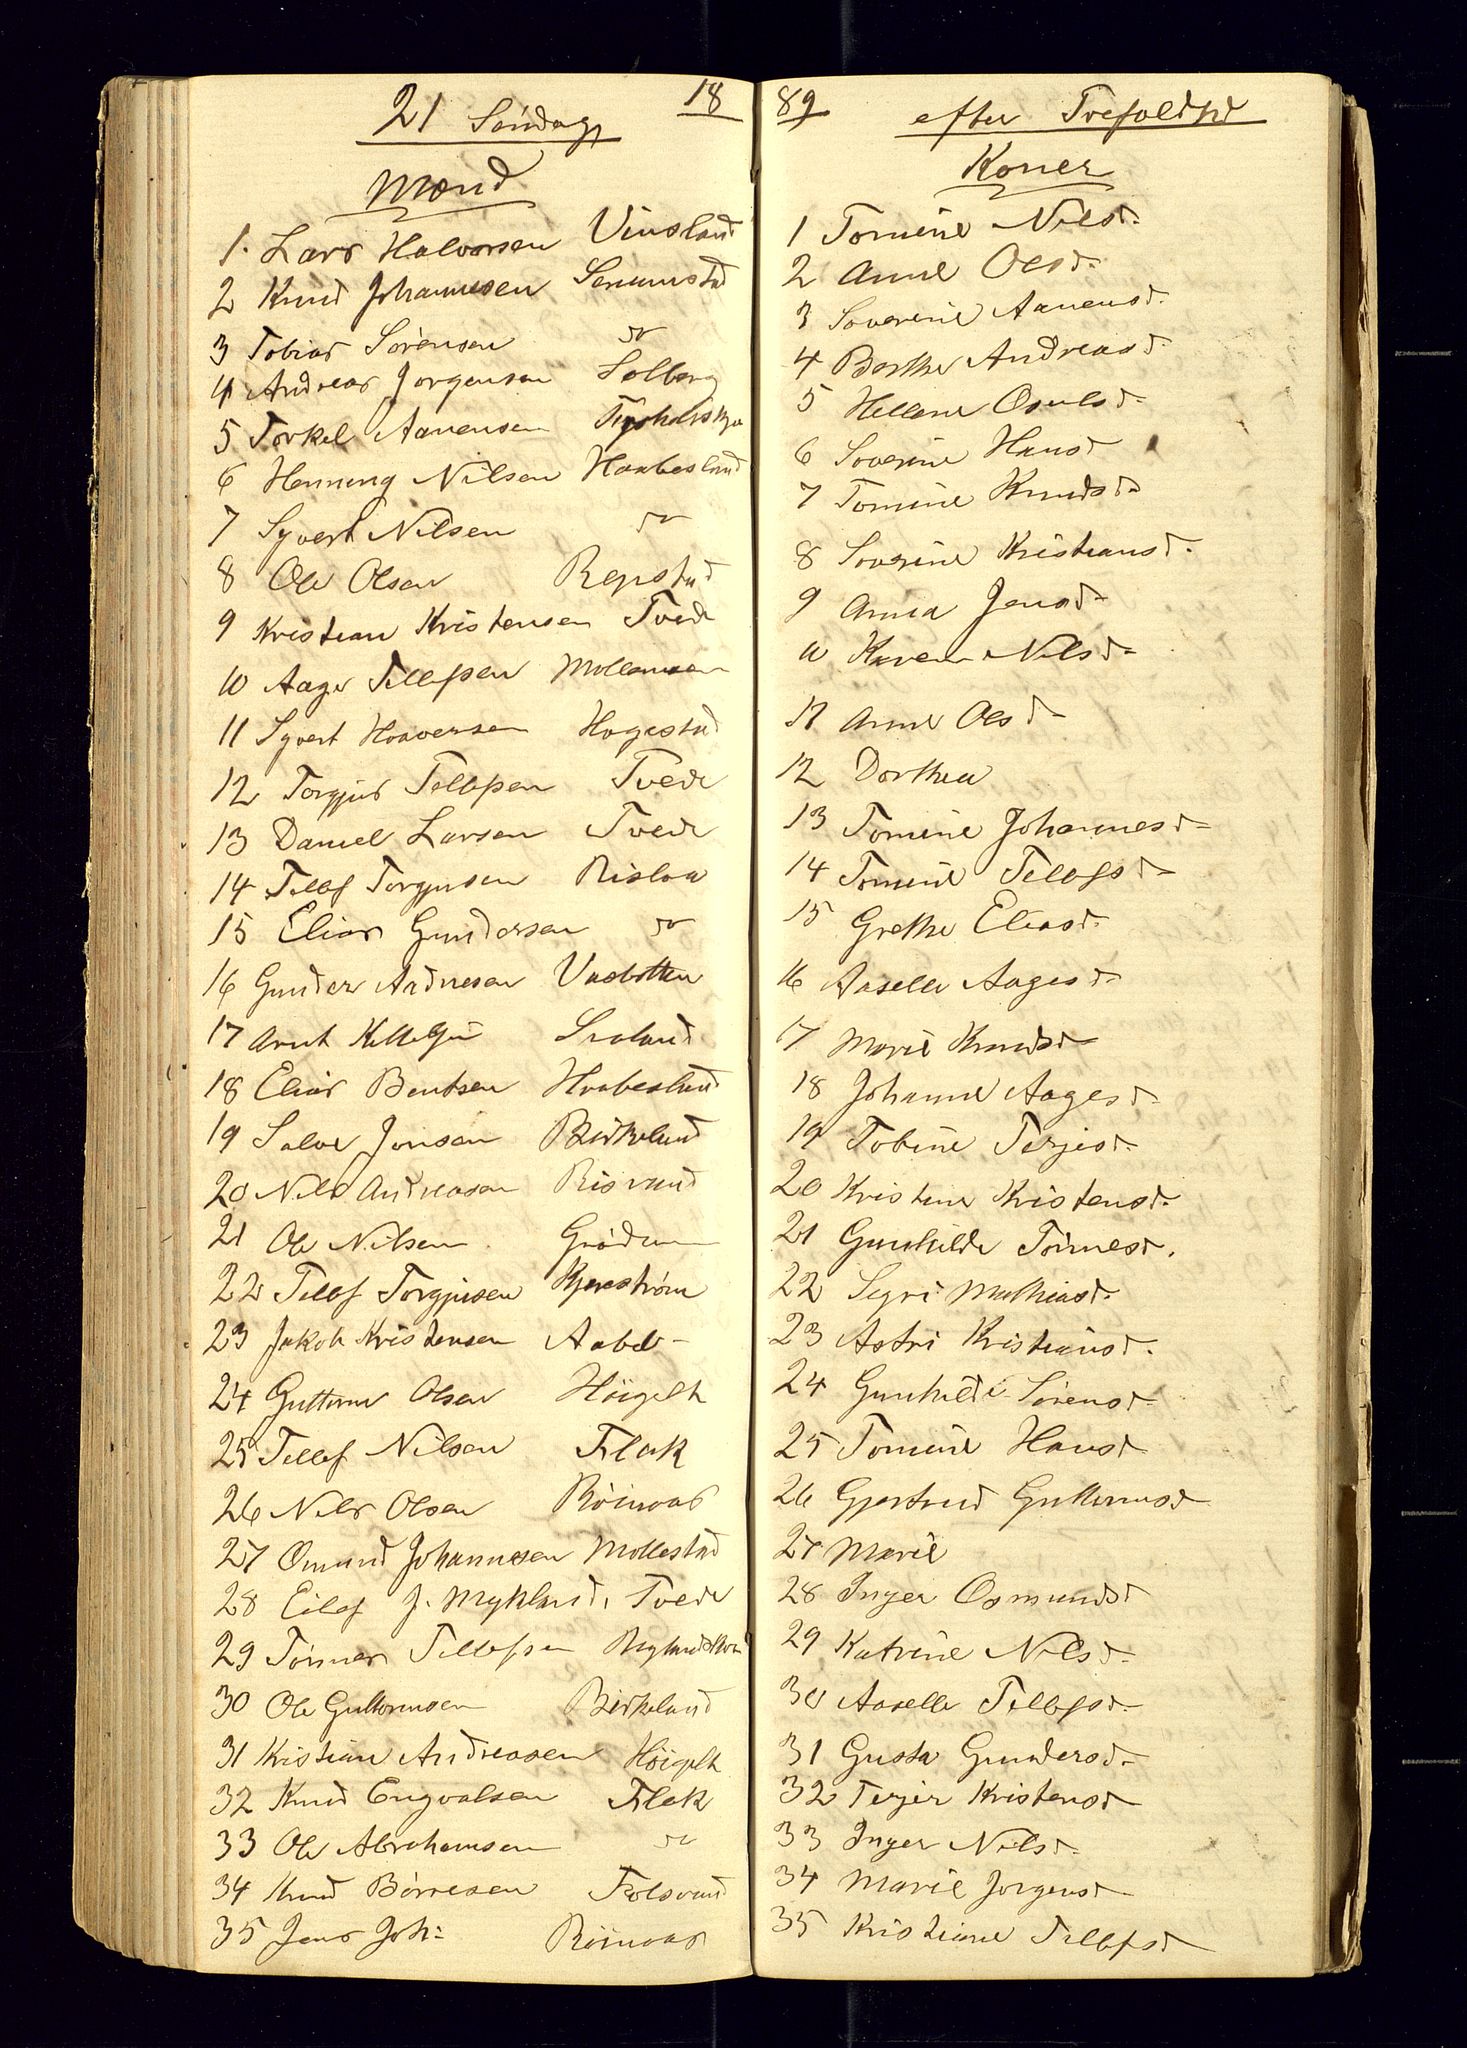 21 Søndag 18
Mænd
1. Lars Halvorsen Vinsland
2 Knud Johannesen Senumstad
3 Tobias Sørensen do
4 Andreas Jørgensen Solberg
5 Torkel Aanensen
6 Henning Nilsen Haabesland
7 Syvert Nilsen do
8 Ole Olsen Repstad
9 Kristian Kristensen Tvede
10 Aage Tellefsen Mollemoen
11 Syvert Haaversen Hagestad
12 Torgjus Tellefsen Tvede
13 Daniel Larsen Tvede
14 Tellef Torgjusen Rislaa
15 Elias Gundersen do
16 Gunder Andresen Vasbotten
17 Arnt Kittelsen
18 Elias Bentsen Haabesland
19 Salve Jensen Birkeland
20 Nils Andreasen Risvand
21 Ole Nilsen Grødum
22 Tellef Torgjusen Kjerestrøm
23 Jakob Kristensen Aabel
24 Guttorm Olsen Høigilt
25 Tellef Nilsen Flak
26 Nils Olsen Røinaas
27 Omund Johannesen Mollestad
28 Eilef J. Mykland, Tvede
29 Tønnes Tellefsen
30 Ole Guttormsen Birkeland
31 Kristian Andreasen Høigilt
32 Knud Engvalsen Flak
33 Ole Abrahamsen do
34 Knud Børresen Tolsvand
35 Jens Joh: Røinaas
89 efter Trefoldhd
Koner
1 Tomine Nilsd.
2 Anne Olsd.
3 Soverine Aanensd.
4 Berthe Andreasd.
5 Hellene Osulsd.
6 Soverine Hansd
7 Tomine Knudsd.
8 Soverine Kristiansd.
9 Anna Jensd.
10 Karen Nilsd.
11 Anne Olsd.
12 Dorthea
13 Tomine Johannesd.
14 Tomine Tellefsd.
15 Grethe Eliasd.
16 Aaselle Aagesd.
17 Marie Knudsd.
18 Johanne Aagesd.
19 Tobine Terjesd.
20 Kristine Kristensd.
21 Gunhilde Tønnesd.
22 Segri Mathiasd.
23 Astri Kristiansd.
24 Gunhilde Sørensd.
25 Tomine Hansd
26 Gjertrud Guttormsd.
27 Marie
28 Inger Osmundsd
29 Katrine Nilsd.
30 Aaselle Tellefsd.
31 Gusta Gundersd.
32 Terjer Kristensd
33 Inger Nilsd.
34 Marie Jørgensd
35 Kristiane Tellefsd